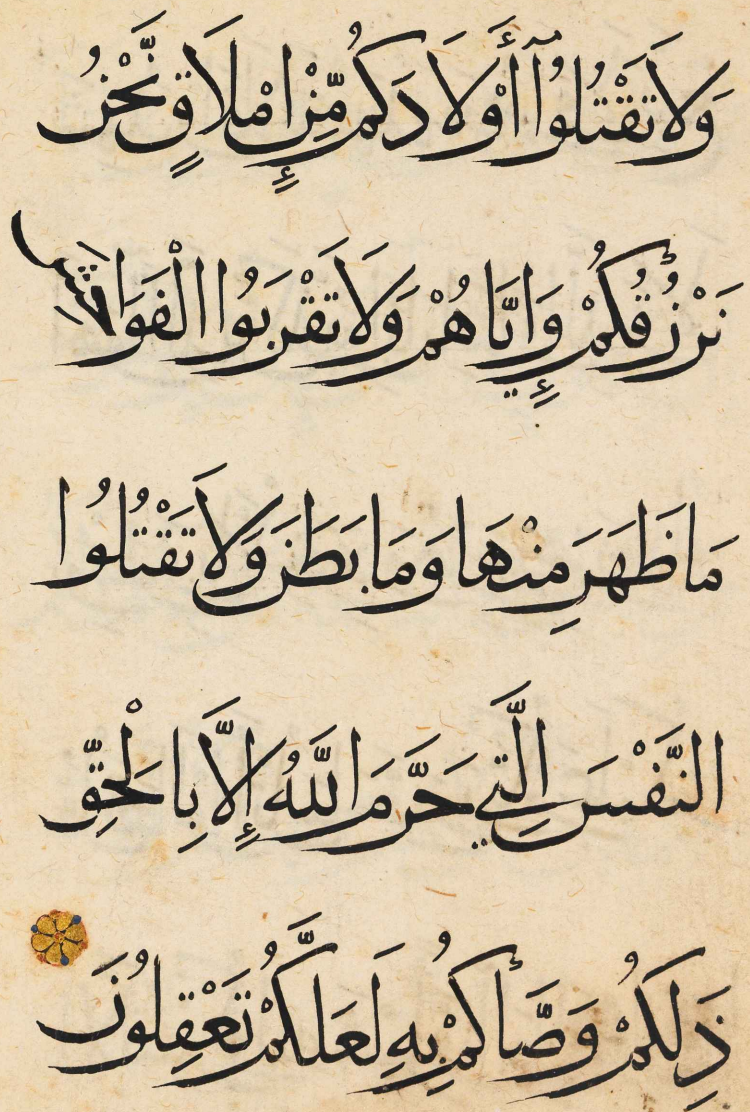 وَلَا تَقْتُلُوٓا أَوْلَادَكُم مِّنْ إِمْلَاقٍ نَّحْنُ
نَرْزُقُكُمْ وَإِيَّاهُمْ وَلَا تَقْرَبُوا الْفَوَاحِشَ
مَا ظَهَرَ مِنْهَا وَمَا بَطَنَ وَلَا تَقْتُلُوا
النَّفْسَ الَّتِي حَرَّمَ اللَّهُ إِلَّا بِالْحَقِّ
ذَلِكُمْ وَصَّاكُمْ بِهِ لَعَلَّكُمْ تَعْقِلُونَ